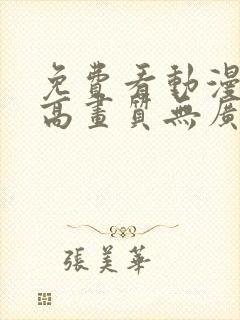 免費看動漫
高畫質無廣
張美華